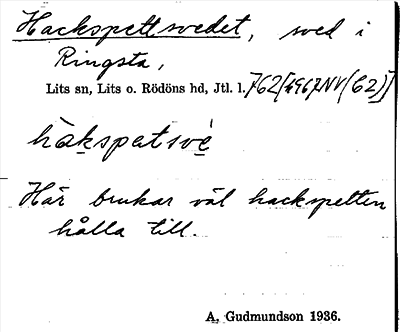 Hackspettsvedet, sved i
Ringsta,
Lits sn, Lits o. Rödöns hd, Jtl. l. 762[4967NV(C2)]
håkspatsvé
Här brukar väl hackspetten
hålla till.
A. Gudmundson 1936.